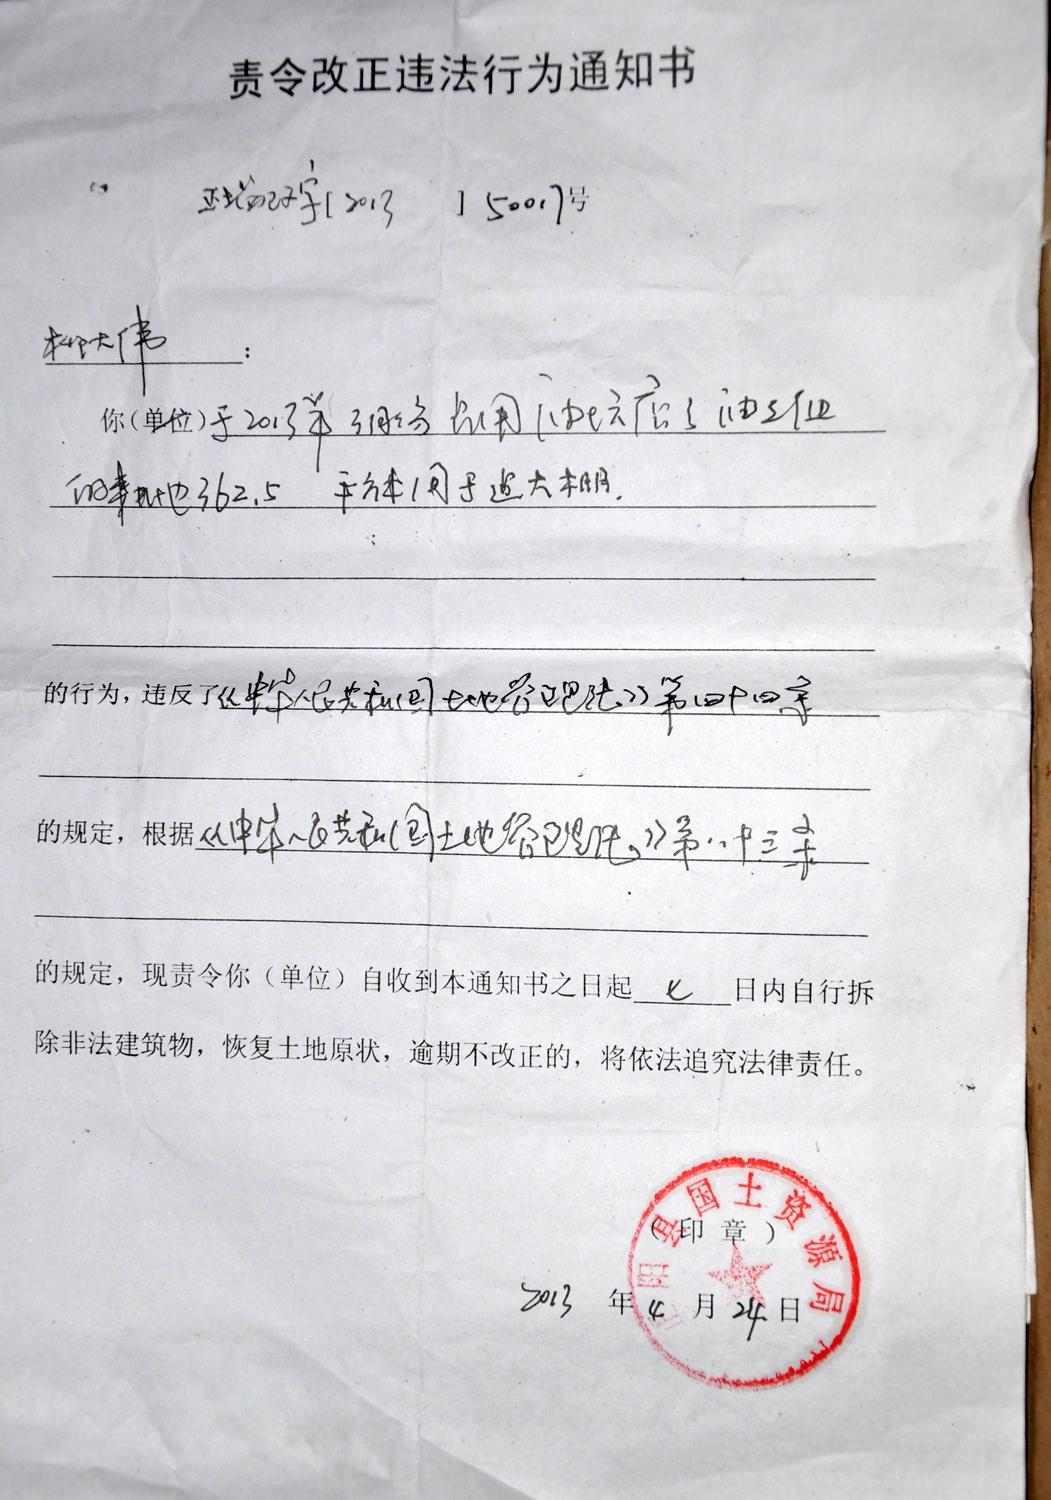 责令改正违法行为通知书
正土 改字[2013 ]50017号
柳大伟:
你(单位)于2013年3月份占用油坊店 油坊店
的耕地362.5 平方米用于建大棚.
的行为,违反了《中华人民共和国土地管理法》第四十四条
的规定,根据《中华人民共和国土地管理法》第八十三条
的规定,现责令你(单位)自收到本通知书之日起 七 日内自行拆
除非法建筑物,恢复土地原状,逾期不改正的,将依法追究法律责任。
阳县国土资源局
(印章)
2013 年 4 月 24 日